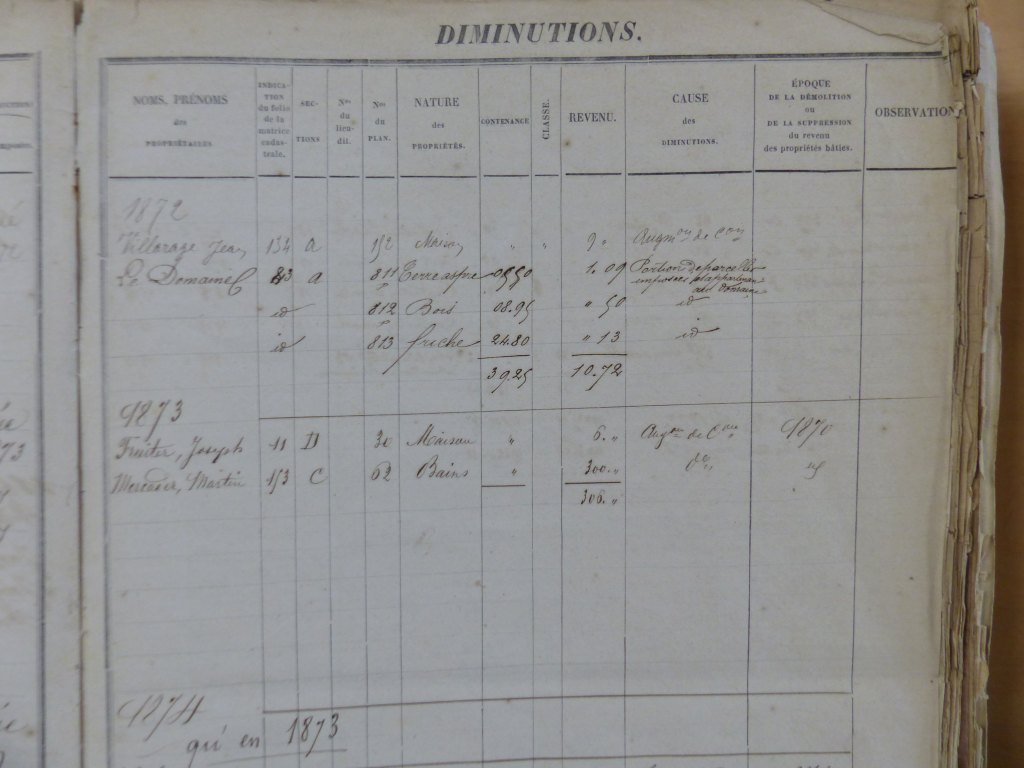 DIMINUTIONS.
NOMS, PRÉNOMS des PROPRIÉTAIRES.
INDICATION du folio de la matrice cadastrale.
SECTIONS
Nos du lieu-dit.
Nos du PLAN.
NATURE des PROPRIÉTÉS.
CONTENANCE
CLASSE.
REVENU.
CAUSE des DIMINUTIONS.
ÉPOQUE DE LA DÉMOLITION ou DE LA SUPPRESSION du revenu des propriétés bâties.
OBSERVATION
1872
Jean 134 a 152 Maison " " 9 " Augmon de Con
Le Domaine 83 a 811 Terre aspre 05.50 1.09 Portion de parcelles
imposées appartenan
au domaine
id 812 Bois 08.95 " 50 id
id 813 friche 24.80 " 13 id
39.25 10.72
1873
Joseph 11 D 30 Maison " 6. " Augon de Con 1870
Mercader, Martin 153 C 62 Bains " 300. " do "
306. "
1874
qu'en 1873